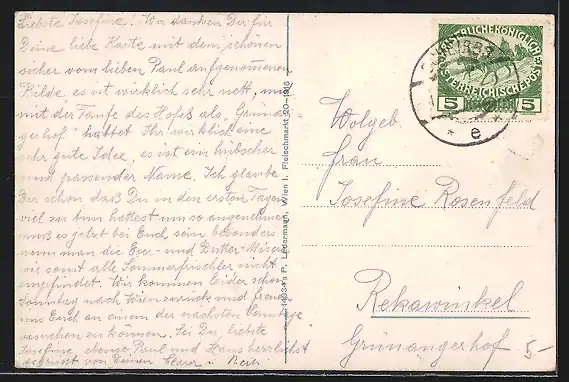 Liebste Josefine! Wir danken Dir für
Deine liebe Karte mit dem schönen
sicher vom lieben Paul aufgenommenen
Bilde es ist wirklich sehr nett, und
mit der Taufe des Hofes als „Grünan-
gerhof" hattet Ihr wirklich eine
sehr gute Idee, es ist ein hübscher
und passender Name. Ich glaube
Dir schon daß Du in den ersten Tagen
viel zu tun hattest um so angenehmer
muß es jetzt bei Euch sein besonders
wenn man die Eier- und Butter-Misere
wie sonst alle Sommerfrischler nicht
empfindet. Wir kommen leider schon
Sonntag nach Wien zurück und freuen
uns Euch an einem der nächsten Sonntage
besuchen zu können. Sei Du liebste
Josefine ebenso Paul und Hans herzlichst
gegrüßt von Deinen Klara u.
P. Ledermann, Wien I. Fleischmarkt 20-1915
KAISERLICHE KÖNIGLICHE
ÖSTERREICHISCHE POST
5 5
SCHEIBBS
* e
Wolgeb.
Frau
Josefine Rosenfeld
Rekawinkel
Grünangerhof
5-